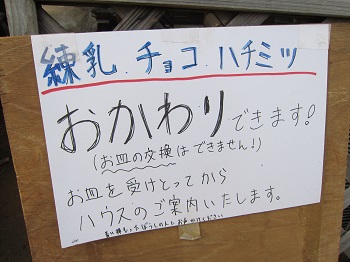 練乳.チョコ.ハチミツ
おかわりできます!
(お皿の交換はできません!)
お皿を受けとってから
ハウスのご案内いたします。